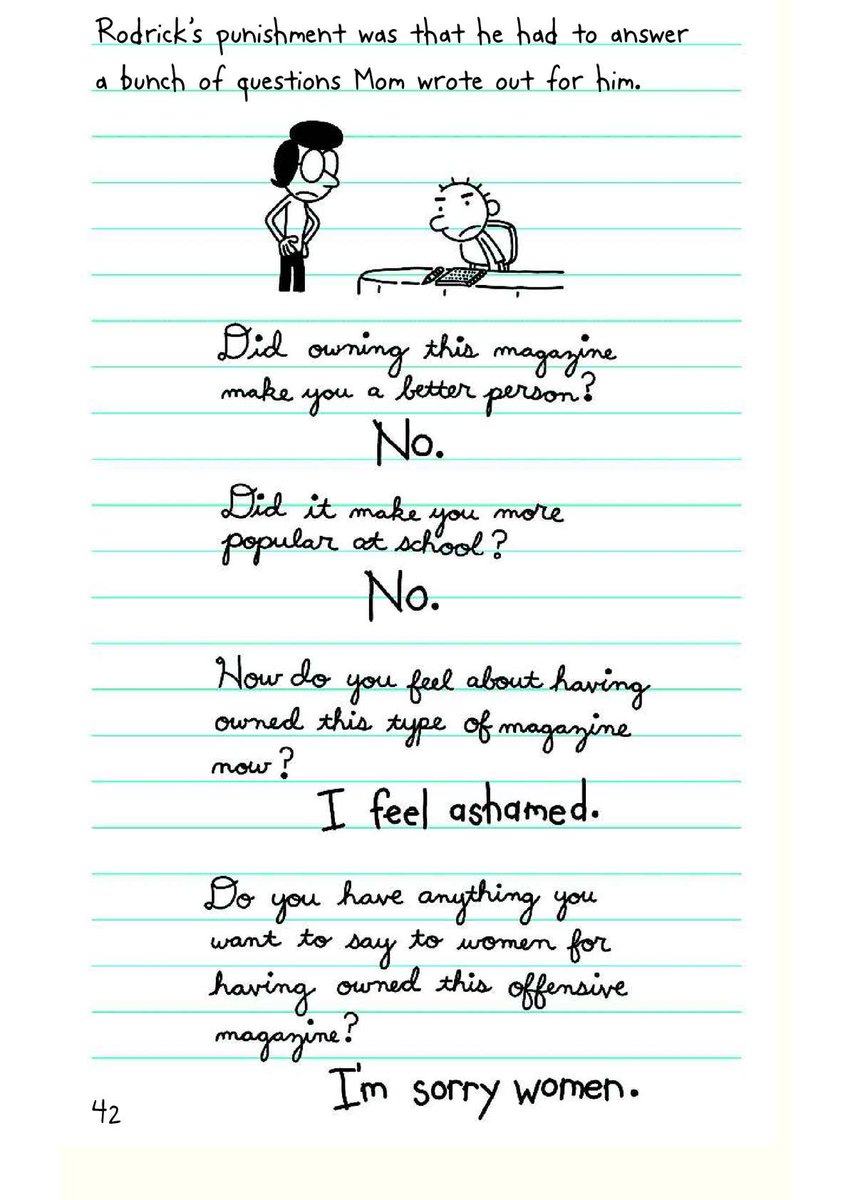 Rodrick's punishment was that he had to answer
a bunch of questions Mom wrote out for him.
Did owning this magazine
make you a better person?
No.
Did it make you more
popular at school?
No.
How do you feel about having
owned this type of magazine
now?
I feel ashamed.
Do you have anything you
want to say to women for
having owned this offensive
magazine?
I'm sorry women.
42